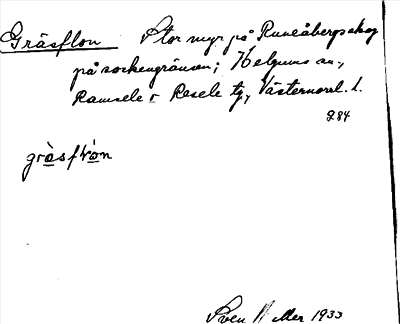 Gräsflon Stor myr på Runeåbergs skog
på sockengränsen; Helgums sn.,
Ramsele o Resele tg, Västernorrl. l.
284
gràsflón
Sven 1933